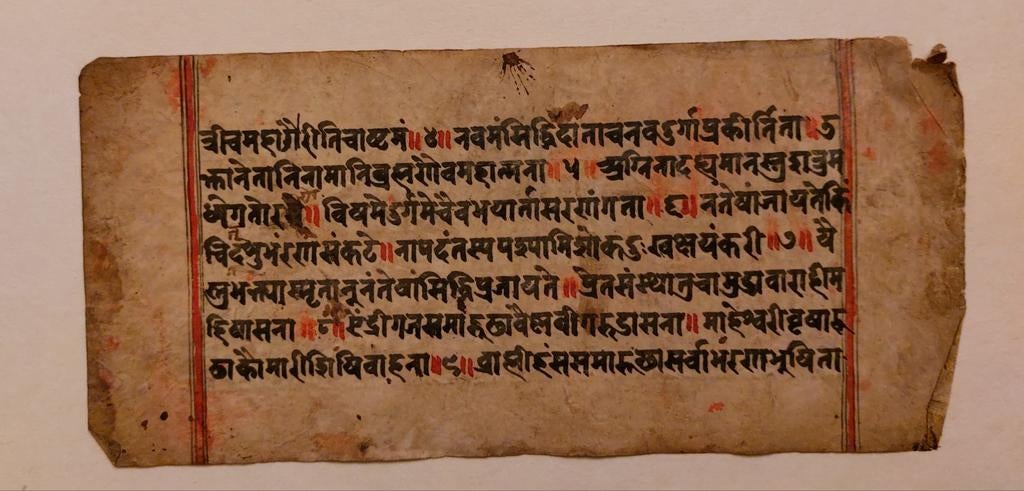 त्रीचमहागौरीतिचाष्टमं॥४॥नवमंसिद्धिदाताचनवदुर्गाप्रकीर्तिता॥उ
क्तानेतानिनामानिब्रह्मणैवमहात्मना॥५॥अग्निनादह्यमानस्तुशत्रुम
ध्येगतोरणे॥विषमेदुर्गमेचैवभयार्तासरणंगता॥६॥नतेषांजायतेकिं
चिदशुभंरणसंकटे॥नापदंतस्यपश्यामिशोकदुःखक्षयंकरी॥७॥यै
स्तुभक्त्यास्मृतानूनंतेषांसिद्धिप्रजायते॥प्रेतसंस्थातुचामुंडावाराहीम
हिषासना॥८॥ऐंद्रीगजसमारूढावैष्णवीगरुडासना॥माहेश्वरीवृषारू
ढाकौमारीशिषिवाहना॥९॥ब्राह्मीहंससमारूढासर्वाभरणभुषिता